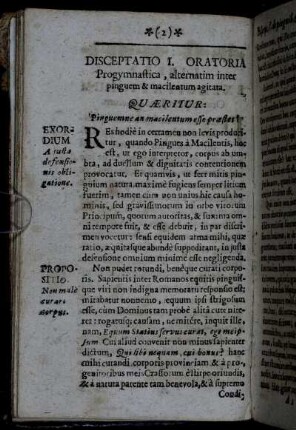 ✶(2)✶
DISCEPTATIO I. ORATORIA
Progymnastica, alternatim inter
pinguem & macilentum agitata.
QUÆRITUR:
Pinguemne an macilentum esse præstet?
EXOR-
DIUM
A justa
defensio-
nis obli-
gatione.
RES hodiè in certamen non levis produci-
tur, quando Pingues à Macilentis, hoc
est, ut ego interpretor, corpus ab um-
bra, ad dorsum & dignitatis contentionem
provocatur. Et quamvis, ut feret mitis pin-
guium natura, maximè fugiens semper litium
fuerim, tamen cum non unius hîc causa homi-
nis, sed gravissimorum in urbe virorum
Principum, quorum autoritas, & fuxima omni
tempore fuit, & esse debuit, in par discri-
men vocetur: sensi equidem armas mihi, quæ
ratio, æquitasque abundè suppeditant, in justa
defensione omnium minimè esse negligenda.
PROPO-
SITIO.
Non malè
curare
corpus.
Non pudet rotundi, benéque curati corpo-
ris. Sapienter inter Romanos equitis pinguis-
que viri non indigna memoratu responsio est;
mirabatur nonnemo, equum ipsi strigosum
esse, cum Dominus tam probè alitâ cute nite-
ret: rogatusque causam, nemini, inquit ille,
nam, Equum Statius servus curat, ego meip-
sum. Cui aliud convenit non minus sapienter
dictum, Qui sibi nequam, cui bonus? hanc
mihi curandi corporis provinciam & à pro-
genitoribus meis Crassorum è stirpe oriundis,
& à natura parente tam benevola, & à supremo
Condi-